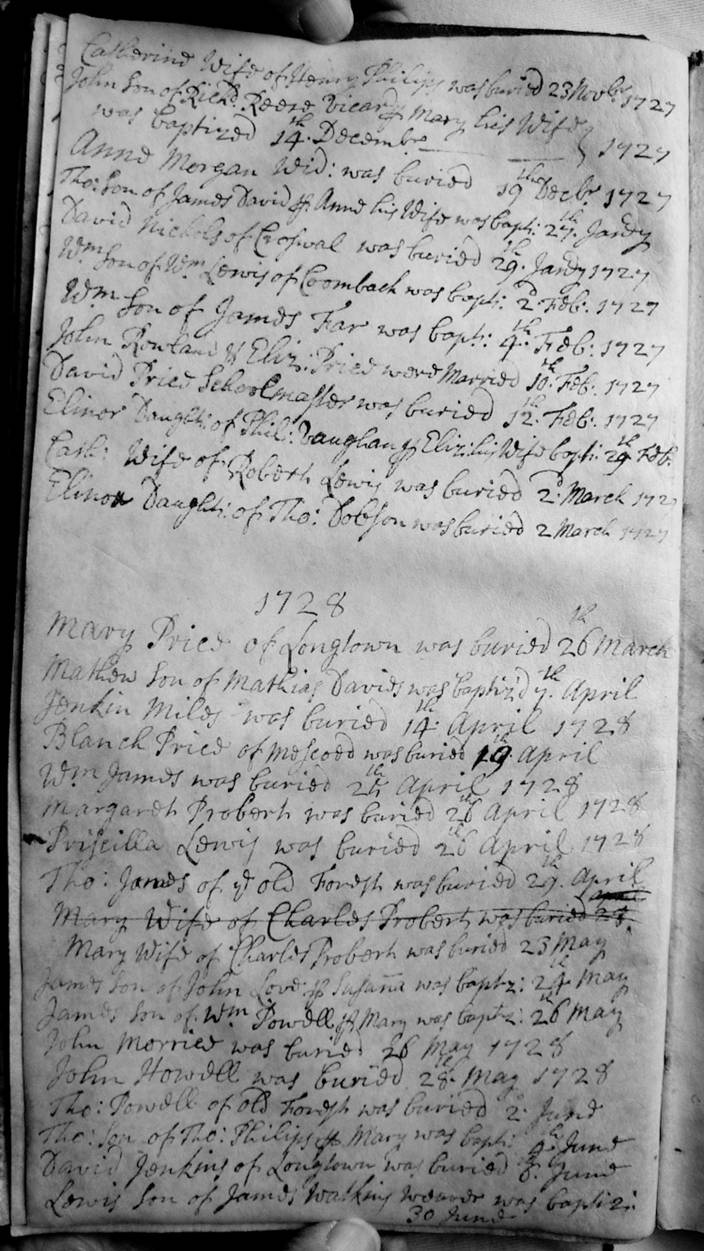 Catherine Wife of Henry Philips was buried 23 Novbr 1727
John Son of Richd. Reese Vicar & Mary his Wife
was baptized 14th. Decembr 1727
Anne Morgan Wid: was buried 19th Decbr 1727
Tho: Son of James David & Anne his Wife was bapt: 27th. Janry
David Nichols of was buried 29th. Janry 1727
Wm Son of Wm Lewis of Coomback was bapt: 2d Feb: 1727
Wm Son of James Far was bapt: 4th. Feb: 1727
John Rowland & Eliz: Price were Married 10th. Feb: 1727
David Price Schoolmaster was buried 12th. Feb: 1727
Elinor Daught: of Phil: Vaughan & Eliz: his Wife bapt: 29th Feb.
Cath: Wife of Robert Lewis was buried 2d. March 1727
Elinor Daught: of Tho: Dobson was buried 2 March 1727
1728
Mary Price of Longtown was buried 26th March
Mathew Son of Mathias Davies was baptizd 7th. April
Jenkin Miles was buried 14th. April 1728
Blanch Price of Mescoed was buried 19th. April
Wm James was buried April 1728
Margaret Probert was buried 26th April 1728
Priscilla Lewis was buried 26th April 1728
Tho: James of ye old Forest was buried 29th. April
Mary Wife of Charles Probert was buried
Mary Wife of Charles Probert was buried 23 May
James Son of John Love & Susana was baptz: 24th. May
James Son of Wm Powell & Mary was baptz: 26th May
John Morrice was buried 26 May 1728
John Howell was buried 28th. May 1728
Tho: Powell of old Forest was buried 2. June
Tho: Son of Tho: Philips & Mary was bapt: June
David Jenkins of Longtown was buried 8th. June
Lewis Son of James Watkins weaver was baptiz:
30 June